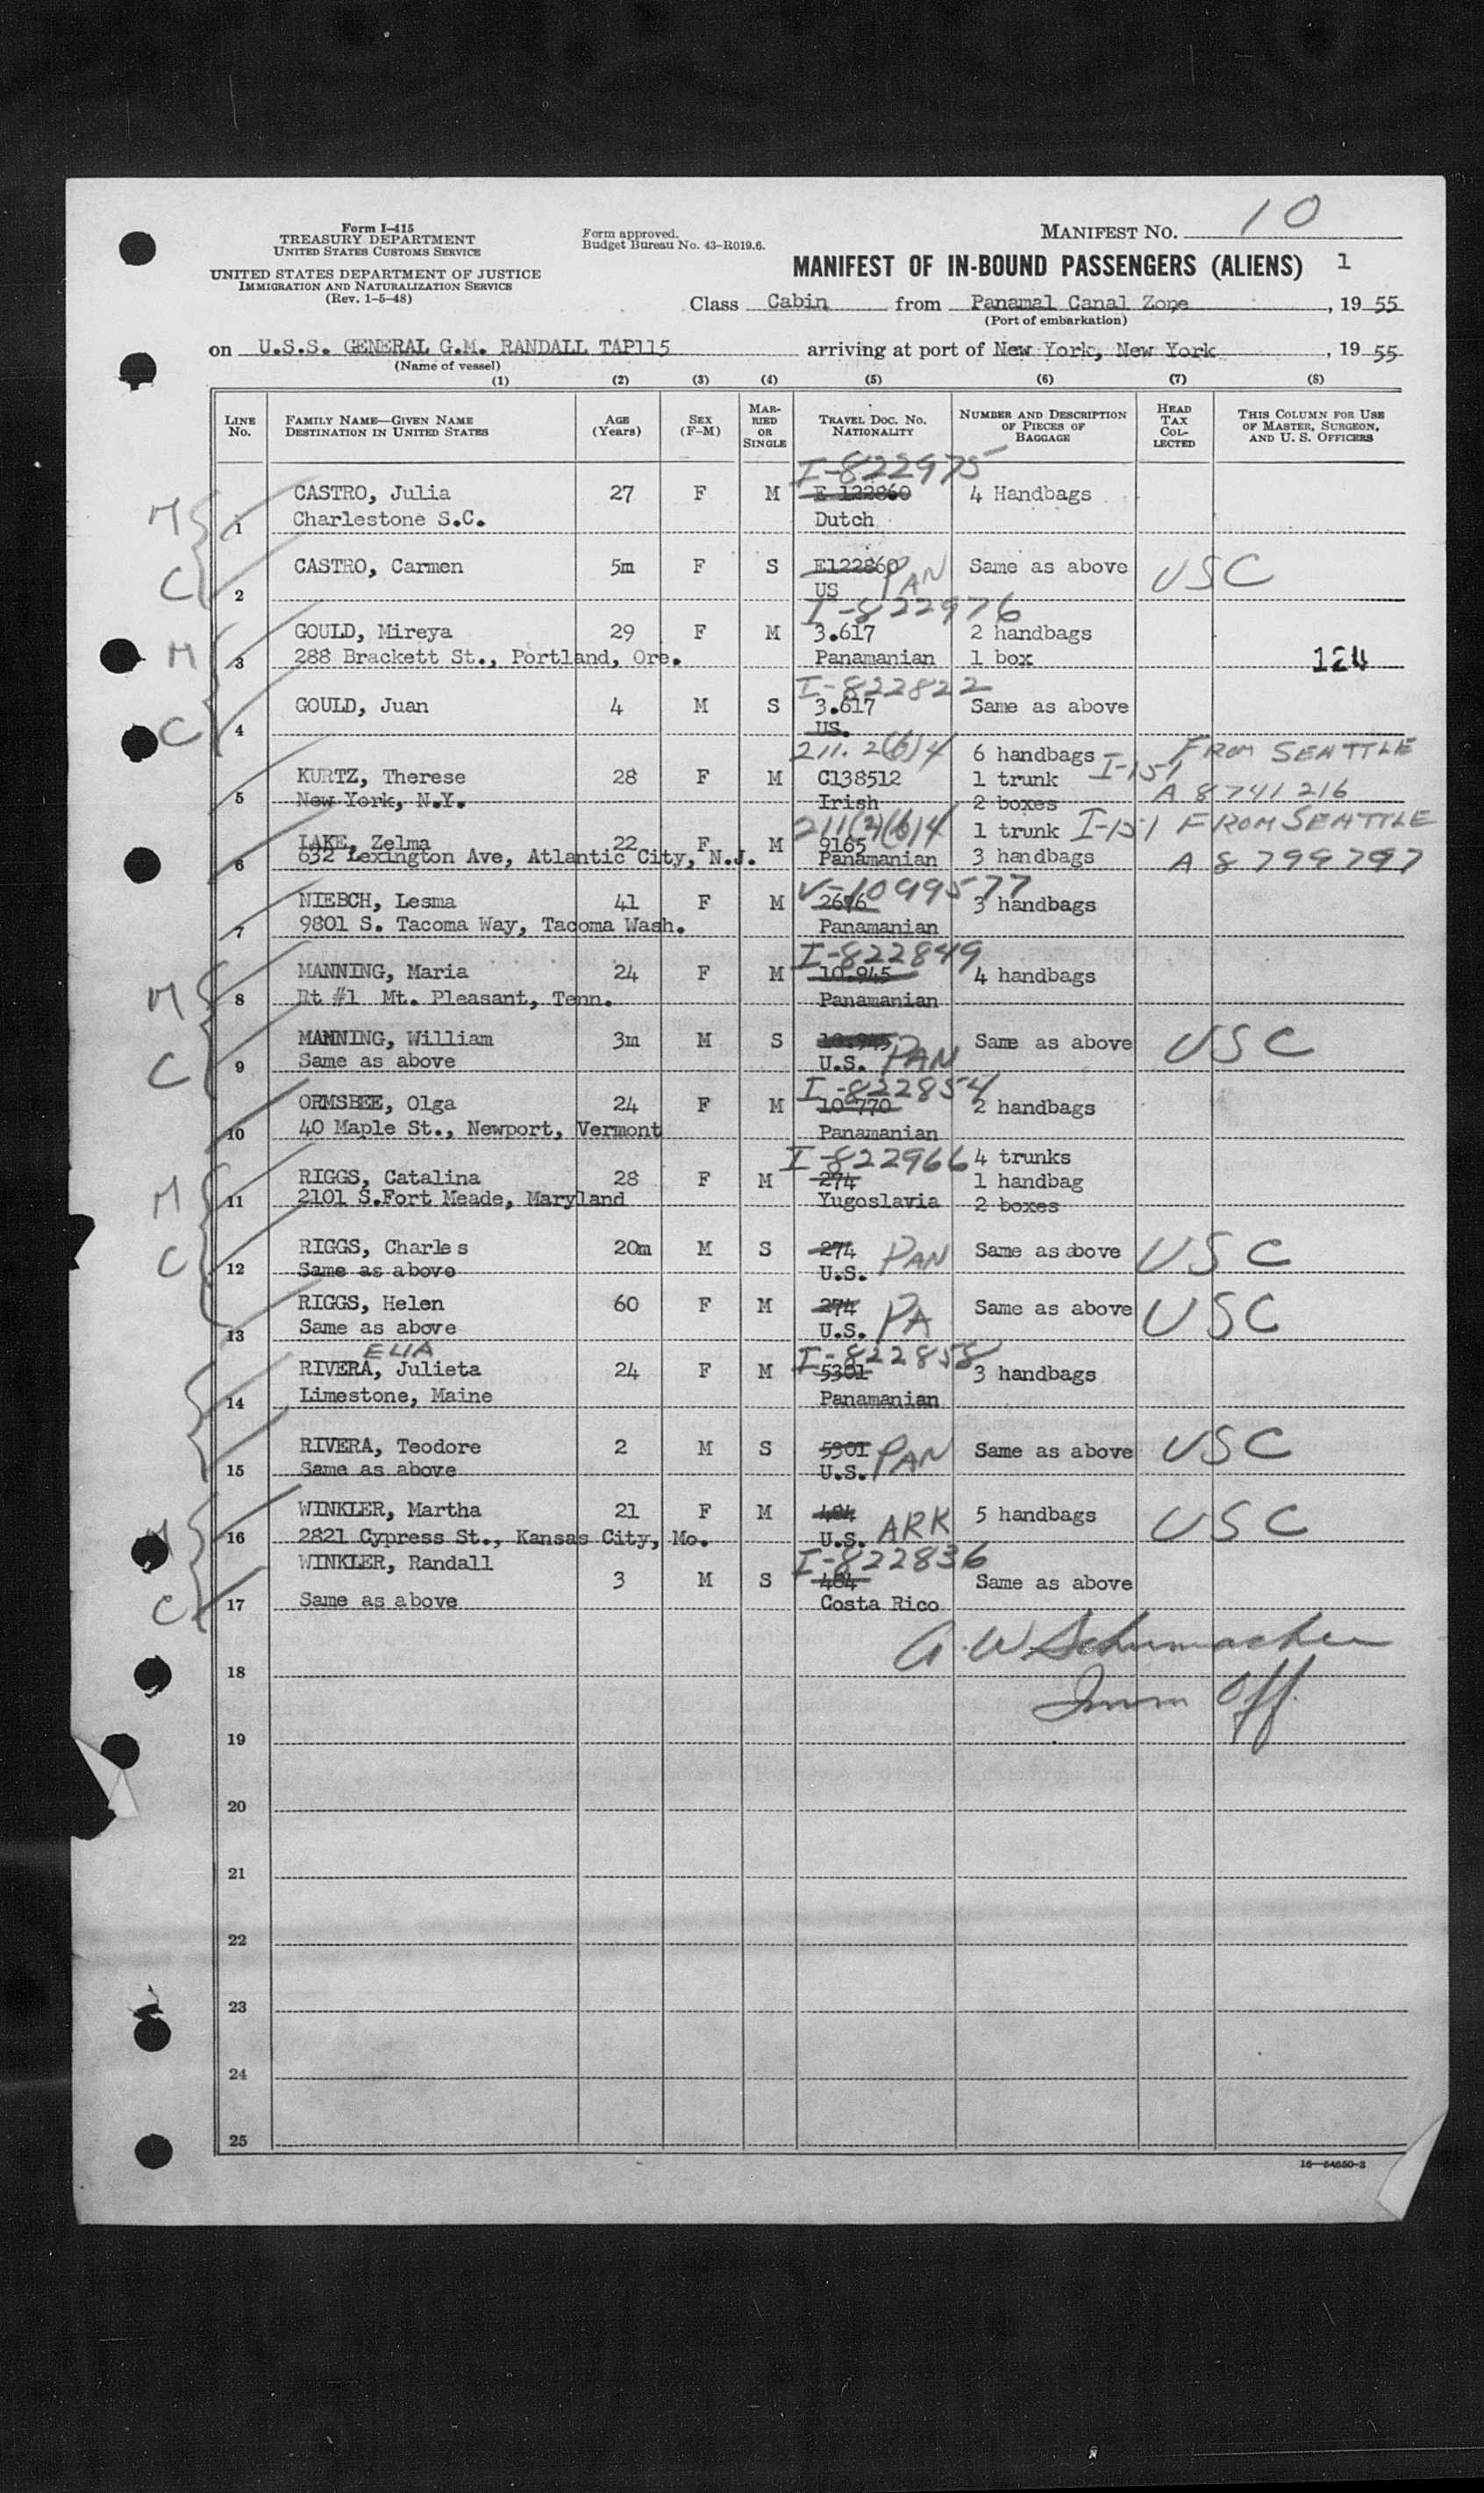 Form I-415
TREASURY DEPARTMENT
UNITED STATES CUSTOMS SERVICE
UNITED STATES DEPARTMENT OF JUSTICE
IMMIGRATION AND NATURALIZATION SERVICE
(Rev. 1-5-48)
Form approved.
Budget Bureau No. 43-R019.6.
MANIFEST NO. 10
MANIFEST OF IN-BOUND PASSENGERS (ALIENS) 1
Class Cabin from Panamal Canal Zone, 19 55
(Port of embarkation)
on U.S.S. GENERAL G.M. RANDALL TAP115 arriving at port of New York, New York, 19 55
(Name of vessel)
(1) (2) (3) (4) (5) (6) (7) (8)
LINE No. FAMILY NAME—GIVEN NAME DESTINATION IN UNITED STATES AGE (Years) SEX (F-M) MARRIED OR SINGLE TRAVEL DOC. NO. NATIONALITY NUMBER AND DESCRIPTION OF PIECES OF BAGGAGE HEAD TAX COLLECTED THIS COLUMN FOR USE OF MASTER, SURGEON, AND U. S. OFFICERS
I-822975
M CASTRO, Julia 27 F M E 122860 4 Handbags
1 Charlestone S.C. Dutch
CASTRO, Carmen 5m F S E122860 PAN Same as above USC
C 2 US
I-822976
GOULD, Mireya 29 F M 3.617 2 handbags
M 3 288 Brackett St., Portland, Ore. Panamanian 1 box 124
I-822822
GOULD, Juan 4 M S 3.617 Same as above
C 4 US.
211.2(b)4 6 handbags FROM SEATTLE
KURTZ, Therese 28 F M C138512 1 trunk I-151
5 New York, N.Y. Irish 2 boxes A 8741216
211(2)(b)4 1 trunk I-151 FROM SEATTLE
LAKE, Zelma 22 F M 9165
6 632 Lexington Ave, Atlantic City, N.J. Panamanian 3 handbags A 8799797
V-1099577
NIEBCH, Lesma 41 F M 2676 3 handbags
7 9801 S. Tacoma Way, Tacoma Wash. Panamanian
I-822849
MANNING, Maria 24 F M 10.945 4 handbags
M 8 Rt #1 Mt. Pleasant, Tenn. Panamanian
MANNING, William 3m M S 10.945 Same as above USC
C 9 Same as above U.S. PAN
I-822854
ORMSBEE, Olga 24 F M 10 770 2 handbags
10 40 Maple St., Newport, Vermont Panamanian
I-822966 4 trunks
RIGGS, Catalina 28 F M 274 1 handbag
M 11 2101 S.Fort Meade, Maryland Yugoslavia 2 boxes
RIGGS, Charles 20m M S 274 PAN Same as above USC
C 12 Same as above U.S.
RIGGS, Helen 60 F M 274 PA Same as above USC
13 Same as above U.S.
ELIA I-822858
RIVERA, Julieta 24 F M 5301 3 handbags
14 Limestone, Maine Panamanian
RIVERA, Teodore 2 M S 5301 PAN Same as above USC
15 Same as above U.S.
WINKLER, Martha 21 F M 484 5 handbags USC
M 16 2821 Cypress St., Kansas City, Mo. U.S. ARK
WINKLER, Randall I-822836
3 M S 484 Same as above
C 17 Same as above Costa Rico
A. W Schumacher
18
Imm Off.
19
20
21
22
23
24
25
16—54650-3